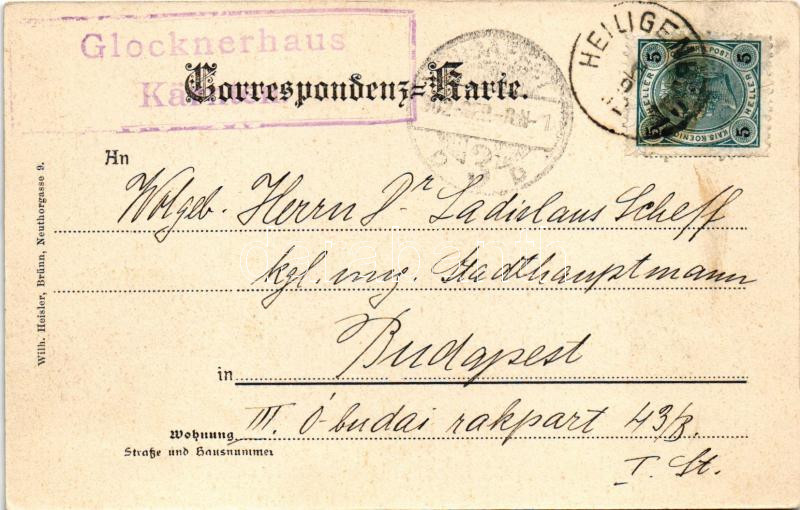 Glocknerhaus
Kärnten
Correspondenz-Karte.
HEILIGEN
5 5
HELLER HELLER
5 5
KAIS. KOENIG.
POST
An
Wolgeb. Herrn Dr Ladislaus Scheff
kgl. ung. Stadthauptmann
Budapest
in
III. Ó-budai rakpart 43/B.
Wohnung
Straße und Hausnummer
I. St.
Wilh. Heisler, Brünn, Neuthorgasse 9.